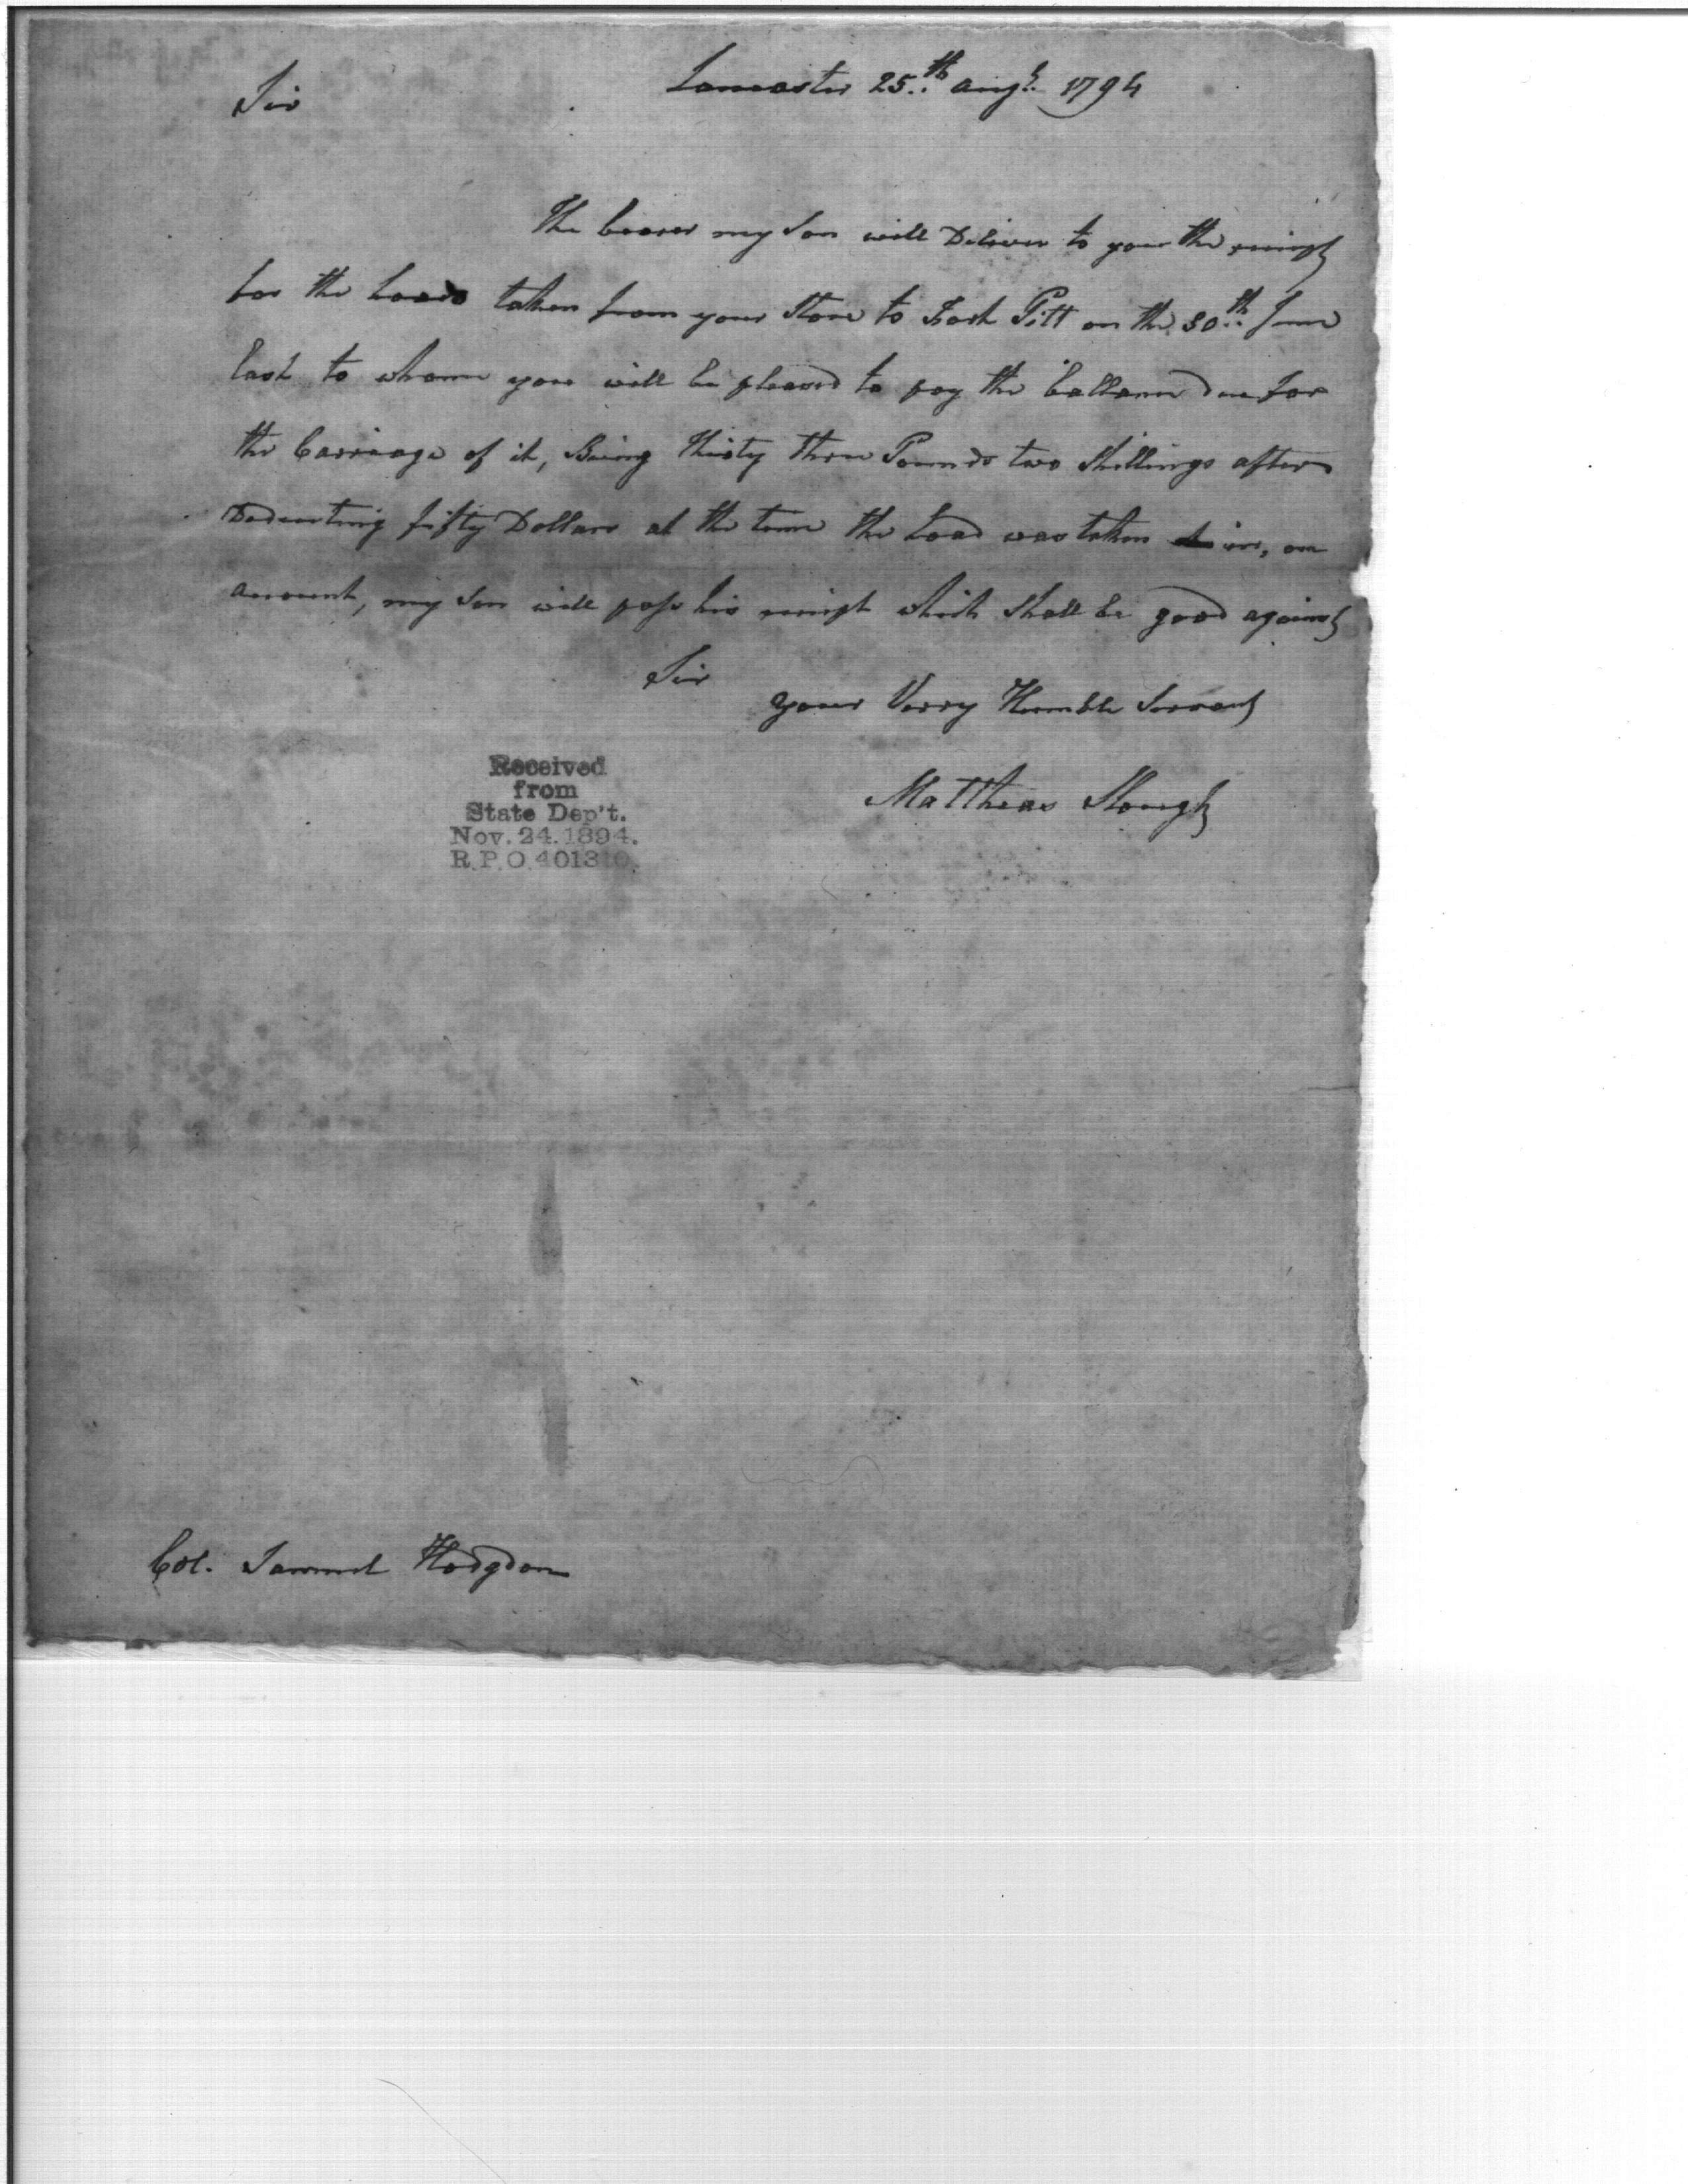 Lancaster 25.th Augt. 1794
Sir
The bearer my Son will Deliver to you the receipt
for the Load taken from your Store to Fort Pitt on the 30.th June
last to whome you will be pleased to pay the ballance due for
the Carriage of it, Being thirty three Pounds two Shillings after
Deducting fifty Dollars at the time the Load was taken in, on
account, my Son will pass his receipt which Shall be good against
Sir
your Verry Humble Servant
Matthias Slough
Received
from
State Dep't.
Nov. 24. 1894.
R.P.O. 401310.
Col. Samuel Hodgdon